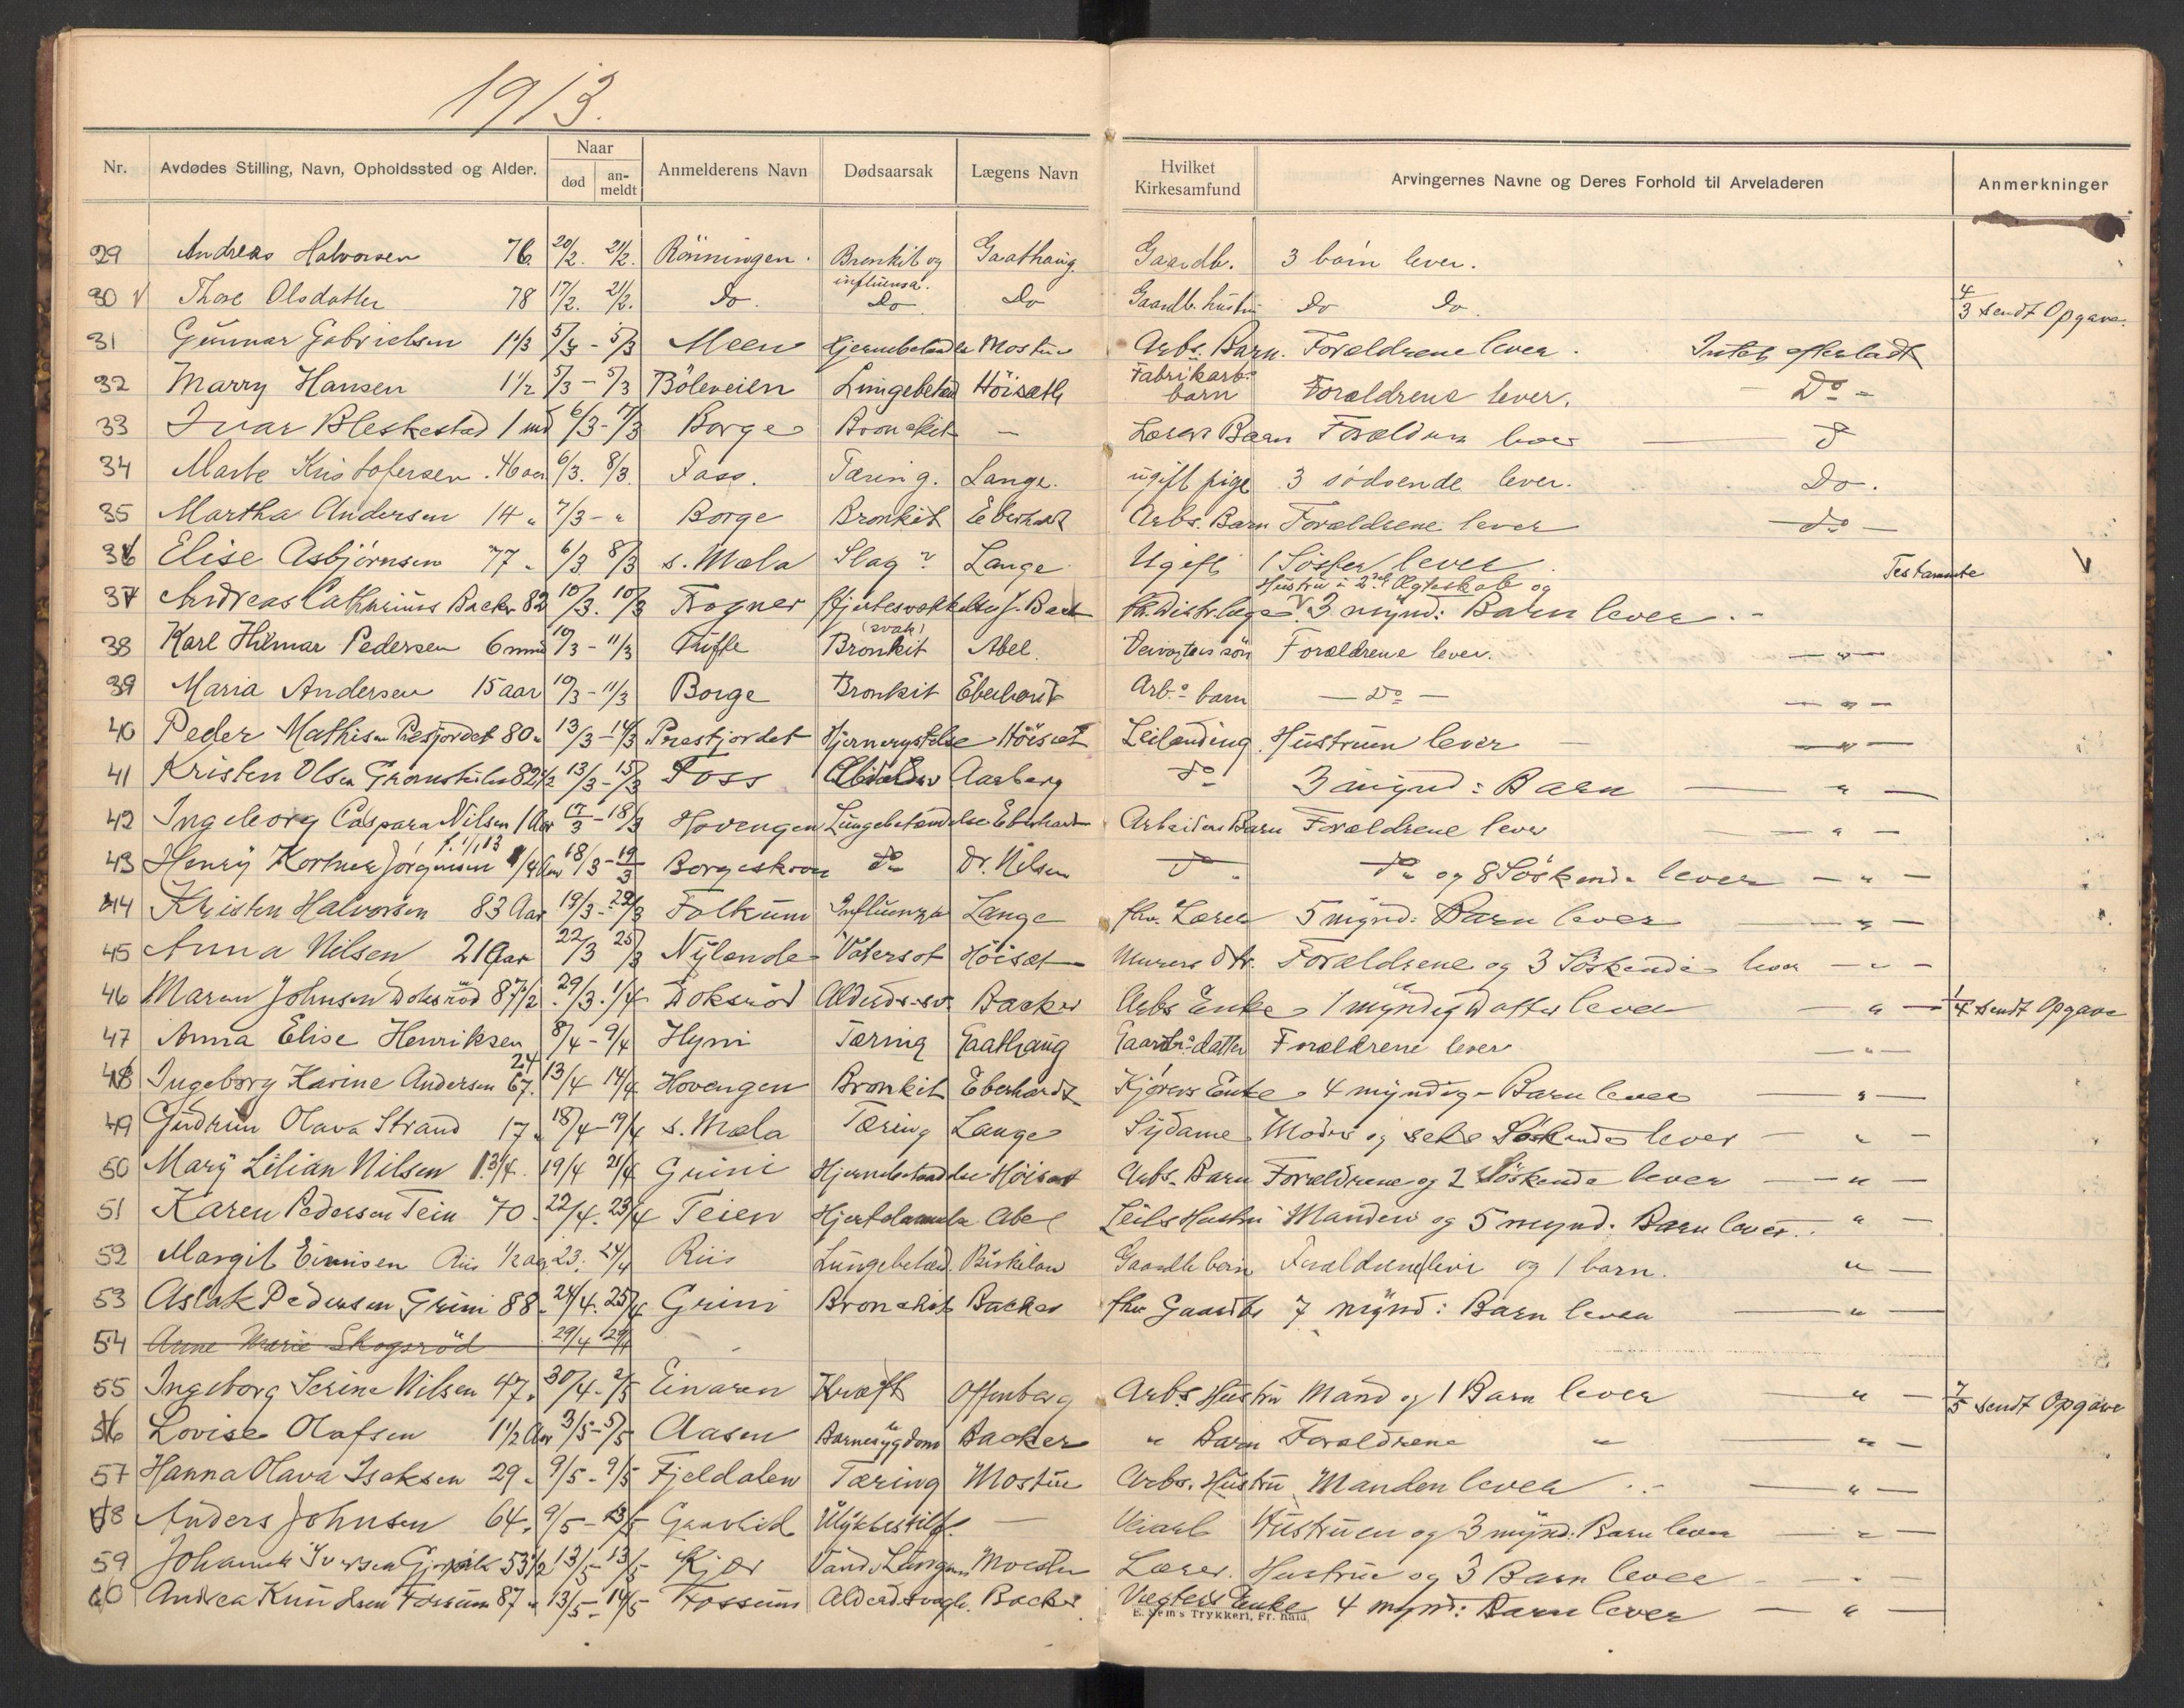 1913.
Nr. Avdødes Stilling, Navn, Opholdssted og Alder. Naar død an-meldt Anmelderens Navn Dødsaarsak Lægens Navn Hvilket Kirkesamfund Arvingernes Navne og Deres Forhold til Arveladeren Anmerkninger
29 Andreas Halvorsen 76 20/2. 21/2. Rönningen. Bronkit og influensa. Gaathaug Gaardb. 3 barn lever.
30 Thore Olsdatter 78 17/2. 21/2. Do. Do. Do Gaardb. hustru Do Do. 4/3 sendt Opgave.
31 Gunnar Gabrielsen 5/3 - 5/3 Meen Hjernebetændelse Mostue Arbs. Barn. Forældrene lever. Intet efterladt
32 Marry Hansen 1 1/2 5/3 - 5/3 Böleveien Lungebetænd Höisæth Fabrikarb. barn Forældrene lever. - Do -
33 Ivar Bleskestad 1 md 6/3 - 7/3 Borge Bronchit - Lærers Barn Forældrene lever - Do
34 Marte Kristofersen. 46 aar 6/3. 8/3. Foss. Tæring. Lange. ugift pige 3 södsende lever. Do.
35 Martha Andersen 14 " 7/3 - " Borge Bronkit Eberhardt Arbs. Barn Forældrene lever - do -
36 Elise Asbjörnsen 77 " 6/3 8/3 s. Mæla Slag ? Lange Ugift 1 Söster lever. Testamente V
37 Andreas Catharinus Backer 82 10/3. 10/3 Frogner Hjertesvækkelse J. Back fh. Distr. læge Hustru i 2det Ægteskab og 3 mynd: Barn lever. -
38 Karl Hilmar Pedersen 6 mnd 10/3 - 11/3 Tufte Bronkit (svak) Abel. Veivogters sön Forældrene lever. - " -
39 Maria Andersen 15 aar 10/3 - 11/3 Borge Bronkit Eberhardt Arb. barn - Do - - " -
40 Peder Mathisen Præstjordet 80 " 13/3 - 14/3 Præstjordet Hjernerystelse Höisæt Leilænding Hustruen lever - " -
41 Kristen Olsen 82 1/2 13/3 - 15/3 Foss Aarberg do 3 mynd: Barn - " -
42 Ingeborg Caspara Nilsen 1 Aar 17/3 - 18/3 Hovengen Lungebetændelse Eberhardt Arbeiders Barn Forældrene lever - " -
43 Henry Kortner Jörgensen f. 1/1 13 1/4 Aar 18/3 - 19/3 Borgeskoven do Dr. Nilsen do do og 8 Söskende lever - " -
44 Kristen Halvorsen 83 Aar 19/3 - 22/3 Folkum Influenza Lange fhv. Lærer 5 mynd: Barn lever - " -
45 Anna Nilsen 21 Aar 22/3 25/3 Nylende Vatersot Höisæt Murers dtr. Forældrene og 3 Söskende lever - " -
46 Maren Johnsen Doksröd 87 1/2 29/3. 1/4 Doksröd Alderds. sv. Backer Arbs Enke 1 myndig Datter lever - " - 1/4 sendt Opgave
47 Anna Elise Henriksen 24 8/4 - 9/4 Hyni Tæring Gaathaug Gaardbr. datter Forældrene lever - " -
48 Ingeborg Karine Andersen 67. 13/4 14/4 Hovengen Bronkit Eberhardt Kjörers Enke 4 myndig - Barn lever - " -
49 Gudrun Olava Strand 17 " 18/4 - 19/4 s. Mæla Tæring Lange Sydame Moder og seks Söskende lever - " -
50 Mary Lilian Nilsen 1 3/4. 19/4 21/4 Grini Hjernebetændelse Höisæt Arbs. Barn Forældrene og 2 Söskende lever - " -
51 Karen Pedersen Teien 70 - 22/4. 23/4 Teien Hjertelammelse Abel Leil. Hustru Manden og 5 mynd. Barn lever. - " -
52 Margit Riis 1/2 aar 23. 24/4 Riis Lungebetænd. Gaardb. barn Forældrene lever og 1 barn. " -
53 Aslak Pedersen Grini 88 - 24/4. 25/4 Grini Bronchit Backer fhv Gaardbr 7 mynd: Barn lever - " -
54 Anne Marie Skogsröd 29/4 29/4
55 Ingeborg Serine Nilsen 47 " 30/4 - 2/5 Einaren Kræft Offenberg Arbs. Hustru Mand og 1 Barn lever - " - 7/5 sendt Opgave
56 Lovise Olafsen 1 1/2 Aar 3/5 - 5/5 Aasen Barnesygdom Backer " Barn Forældrene " - " -
57 Hanna Olava Isaksen 29 " 9/5 - 9/5 Fjeldalen Tæring Mostue Arbs. Hustru Manden lever - " -
58 Anders Johnsen 64. 9/5 - 13/5 Ulykkestilf. - Hustruen og 3 mynd: Barn lever - " -
59 Iversen 53 1/2 13/5 - 13/5 Kjær Lærer. Hustru og 3 Barn lever - " -
60 Andrea Knudsen Fossum 87 " 13/5 - 14/5 Fossum Alderdsvagh. Backer Vægters Enke 4 mynd: Barn lever - " -
E. Sem's Trykkeri, Fr.hald.